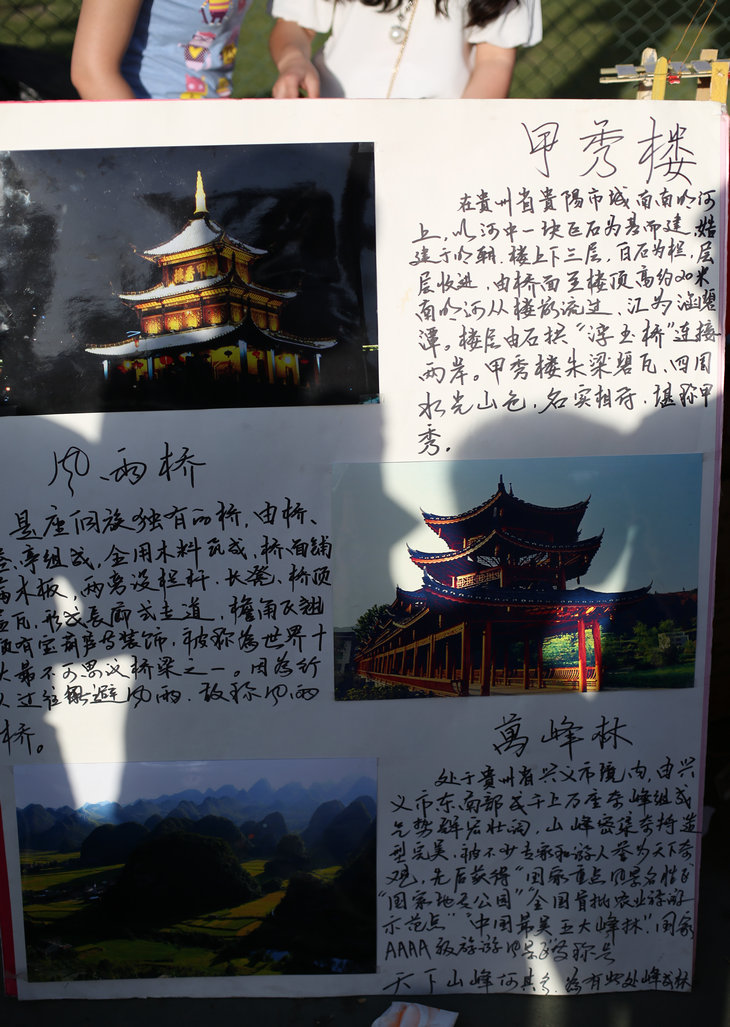 甲秀楼
在貴州省貴陽市城南南明河
上，以河中一块巨石为基而建，始
建于明朝，楼上下三层，白石为栏，层
层收进，由桥面至楼顶高约20米
南明河从楼前流过，汇为涵碧
潭。楼层由石拱“浮玉桥”连接
两岸。甲秀楼朱梁碧瓦，四周
水光山色，名实相符，堪称甲
秀。
风雨桥
是座侗族独有的桥，由桥、
亭组成，全用木料筑成，桥面铺
木板，两旁设栏杆、长凳，桥顶
瓦，形成長廊式走道，檐角飞翘
有宝葫芦等装饰，被称為世界十
大最不可思议桥梁之一。因為行
人过往能避风雨，故称风雨
桥。
萬峰林
处于貴州省兴义市境内，由兴
义市东南部成千上万座奇峰组成
气势磅礴壮阔，山峰密集奇特造
型完美，被不少专家和游人誉为天下奇
观，先后获得“国家重点风景名胜区”
“国家地质公园”“全国首批农业旅游
示范点”“中国最美五大峰林”国家
AAAA级旅游风景区等称号
天下山峰何其多，為有此处峰成林